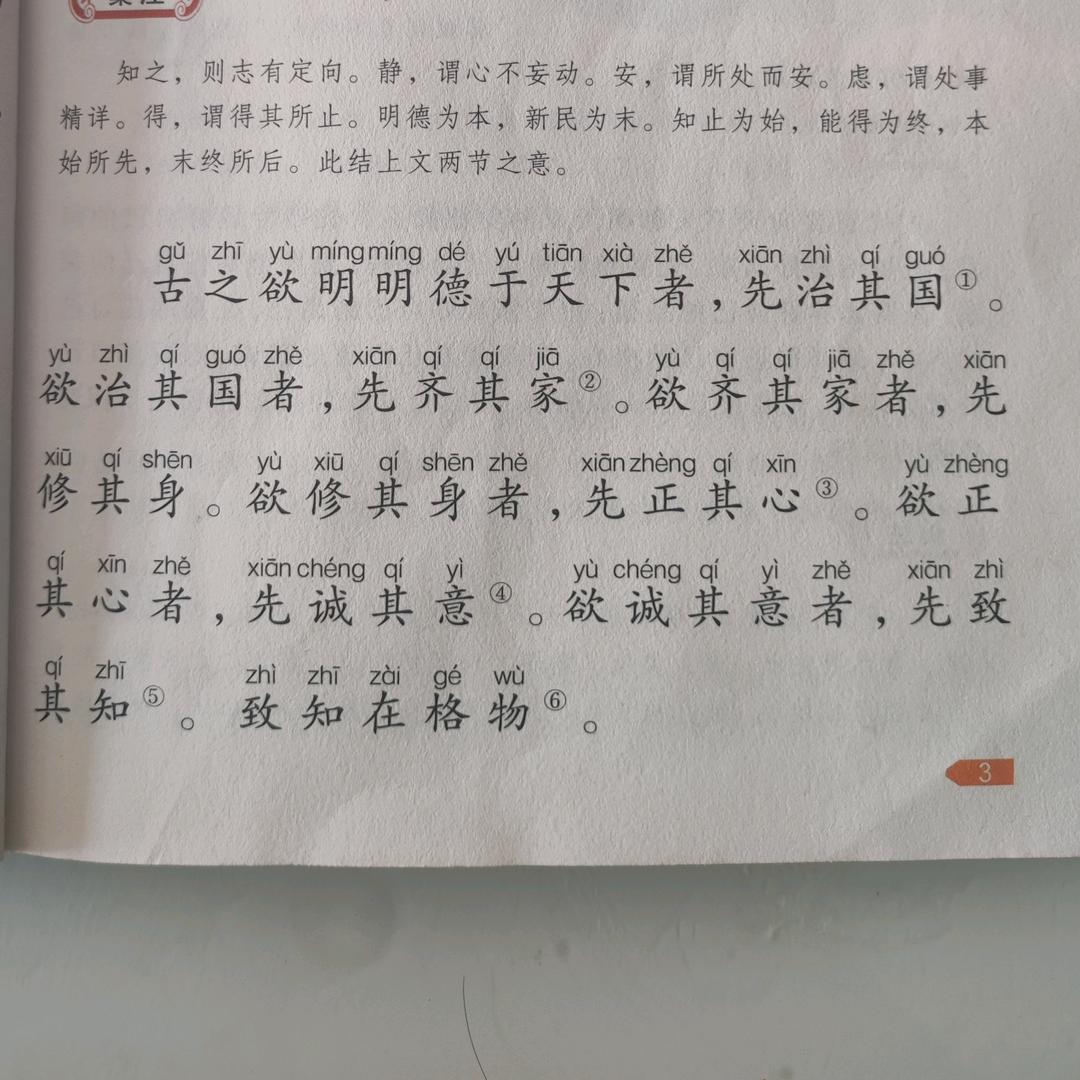 知之，则志有定向。静，谓心不妄动。安，谓所处而安。虑，谓处事
精详。得，谓得其所止。明德为本，新民为末。知止为始，能得为终，本
始所先，末终所后。此结上文两节之意。
gǔ zhī yù míng míng dé yú tiān xià zhě xiān zhì qí guó
古之欲明明德于天下者，先治其国①。
yù zhì qí guó zhě xiān qí qí jiā yù qí qí jiā zhě xiān
欲治其国者，先齐其家②。欲齐其家者，先
xiū qí shēn yù xiū qí shēn zhě xiān zhèng qí xīn yù zhèng
修其身。欲修其身者，先正其心③。欲正
qí xīn zhě xiān chéng qí yì yù chéng qí yì zhě xiān zhì
其心者，先诚其意④。欲诚其意者，先致
qí zhī zhì zhī zài gé wù
其知⑤。致知在格物⑥。
3